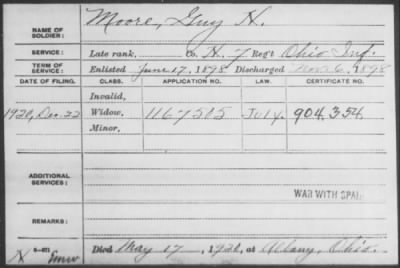 NAME OF SOLDIER: Moore, Guy H.
SERVICE: Late rank, Co. H. 7 Reg't Ohio Inf.
TERM OF SERVICE: Enlisted June 17, 1898. Discharged Nov. 6, 1898
DATE OF FILING. CLASS. APPLICATION NO. LAW. CERTIFICATE NO.
Invalid,
1920, Dec. 22 Widow, 1167505 July. 904.354
Minor,
ADDITIONAL SERVICES:
WAR WITH SPAI
REMARKS:
Died May 17, 1920, at Albany, Ohio.